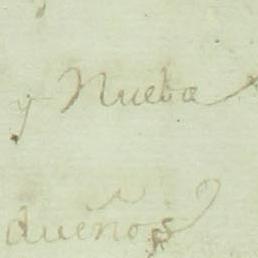 y Nueba
dueños